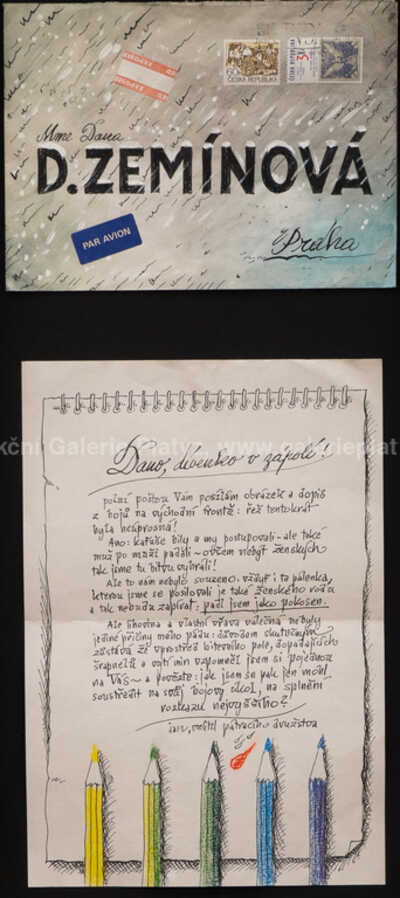 60
ČESKÁ REPUBLIKA
ČESKÁ REPUBLIKA
3
Mme Dana
D.ZEMÍNOVÁ
PAR AVION
Praha
kční Galerie Platýz, www.galerieplat
Dano, děvenko v zápolí!
polní poštou Vám posílám obrázek a dopis
z bojů na východní frontě: řež tentokrát
byla neúprosná!
Ano: kaťuše bily a my postupovali - ale také
muž po muži padali - ovšem nebýt ženských
tak jsme tu bitvu vyhráli!
Ale to nám nebylo souzeno. vždyť i ta pálenka,
kterou jsme se posilovali je také ženského rodu
a tak nebudu zapírat: padl jsem jako pokosen.
Ale shodna a vlastní vřava válečná nebyly
jediné příčiny mého pádu: důvodem skutečným
zůstává že uprostřed bitevního pole, dopadajících
šrapnelů a min vzpomněl jsem si pojednou
na Vás ~ a povězte: jak jsem se pak jen mohl
soustředit na svůj bojový úkol, na splnění
rozkazu nejvyššího?
velitel pátracího družstva